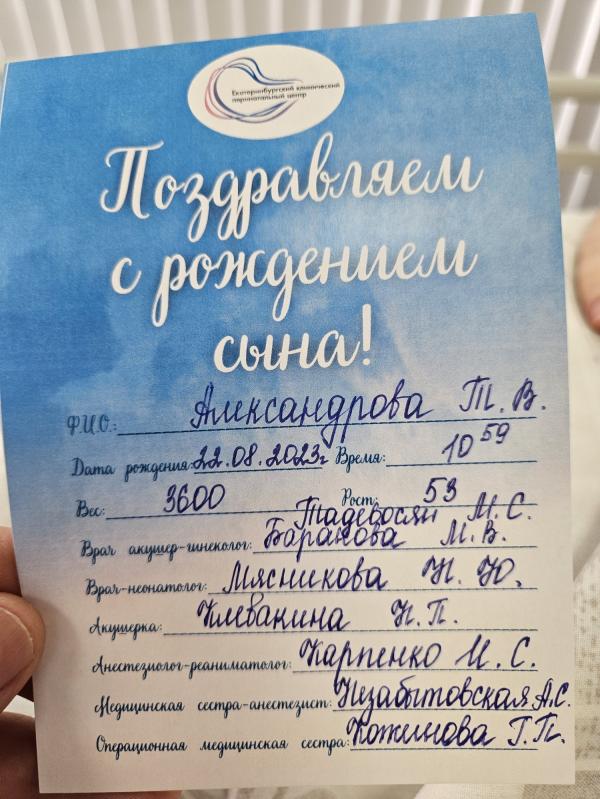 Екатеринбургский клинический
перинатальный центр
Поздравляем
с рождением
сына!
Ф.И.О.: Александрова Т. В.
Дата рождения: 22.08.2023г Время: 10 59
Вес: 3600 Рост: 53
Тадевосян М. С.
Врач акушер-гинеколог: Баранова М. В.
Врач-неонатолог: Мясникова Н. Ю.
Акушерка: Клевакина Н. П.
Анестезиолог-реаниматолог: Карпенко И. С.
Медицинская сестра-анестезист: А.С.
Операционная медицинская сестра: Кожинова Г.П.